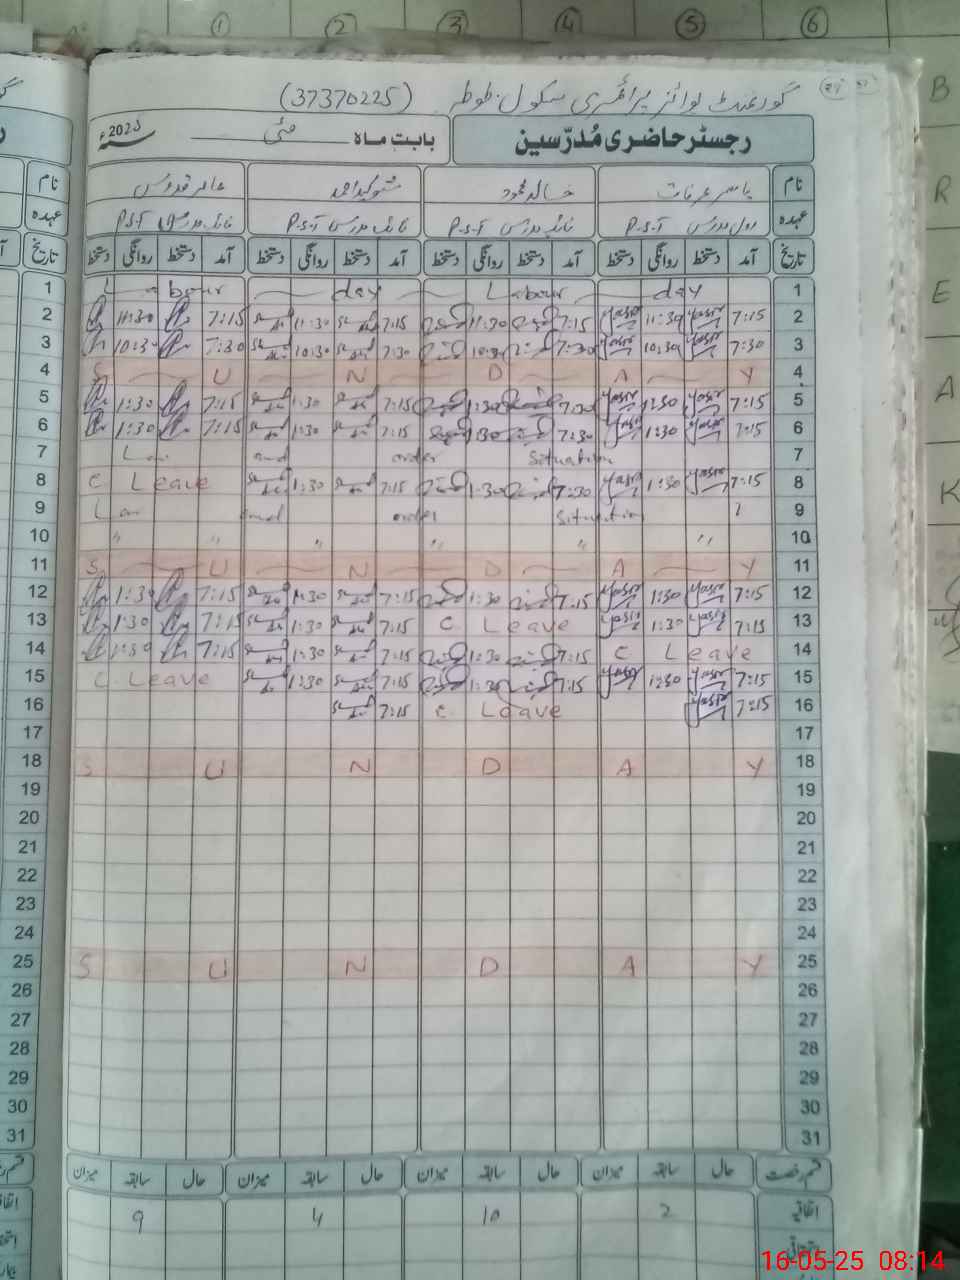 ① ② ③ ④ ⑤ ⑥
گورنمنٹ بوائز پرائمری سکول طوطہ (37370225)
رجسٹر حاضری مُدرّسین
بابت ماہ مئی 2025ء
نام یاسر عرفات خالد محمود عامر قدوس نام
عہدہ P.S.T نائب مدرس P.S.T نائب مدرس P.S.T نائب مدرس P.S.T عہدہ
تاریخ آمد دستخط روانگی دستخط آمد دستخط روانگی دستخط آمد دستخط روانگی دستخط آمد دستخط روانگی دستخط تاریخ
1 Labour day Labour day 1
2 11:30 7:15 11:30 7:15 11:30 7:15 Yasir 11:30 Yasir 7:15 2
3 10:30 7:30 10:30 7:30 10:30 7:30 Yasir 10:30 Yasir 7:30 3
4 S U N D A Y 4
5 1:30 7:15 1:30 7:15 1:30 7:30 Yasir 1:30 Yasir 7:15 5
6 1:30 7:15 1:30 7:15 1:30 7:30 Yasir 1:30 Yasir 7:15 6
7 Law and order Situation 7
8 C Leave 1:30 7:15 1:30 7:30 Yasir 1:30 Yasir 7:15 8
9 Law and order Situation 9
10 " " " " " " 10
11 S U N D A Y 11
12 1:30 7:15 1:30 7:15 1:30 7:15 Yasir 1:30 Yasir 7:15 12
13 1:30 7:15 1:30 7:15 C. Leave Yasir 1:30 Yasir 7:15 13
14 1:30 7:15 1:30 7:15 1:30 7:15 C Leave 14
15 C. Leave 1:30 7:15 1:30 7:15 Yasir 1:30 Yasir 7:15 15
16 7:15 C. Leave Yasir 7:15 16
17 17
18 S U N D A Y 18
19 19
20 20
21 21
22 22
23 23
24 24
25 S U N D A Y 25
26 26
27 27
28 28
29 29
30 30
31 31
قسم رخصت حال سابقہ میزان حال سابقہ میزان حال سابقہ میزان حال سابقہ میزان
اتفاقیہ 2 10 4 9
استحقاقی
B
R
E
A
K
16-05-25 08:14